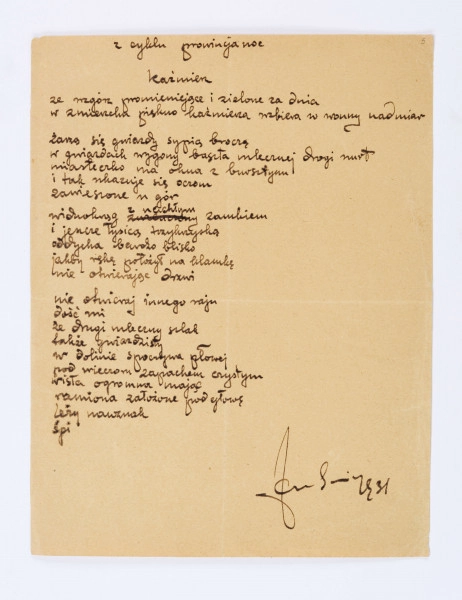 z cyklu prowincja noc
kaźmierz
ze wzgórz promieniejące i zielone za dnia
w zmierzchu piękno kaźmierza wzbiera w wonny nadmiar
żarzą się gwiazdy sypią broczą
w gwiazdach wygony baszta mlecznej drogi nurt
miasteczko ma okna z bursztynu
i tak ukazuje się oczom
zawieszone u gór
widnokrąg z uchylłym zambiem
i jeszcze łysicą trzykrzyską
oddycha bardzo blisko
jakby rękę położył na klamkę
nie otwierając drzwi
nie otwieraj innego raju
dość mi
że drugi mleczny szlak
także gwiaździsty
w dolinie spoczywa płowej
pod wieczoru zapachem czystym
wisła ogromna mając
ramiona założone pod głowę
leży nawznak
śpi